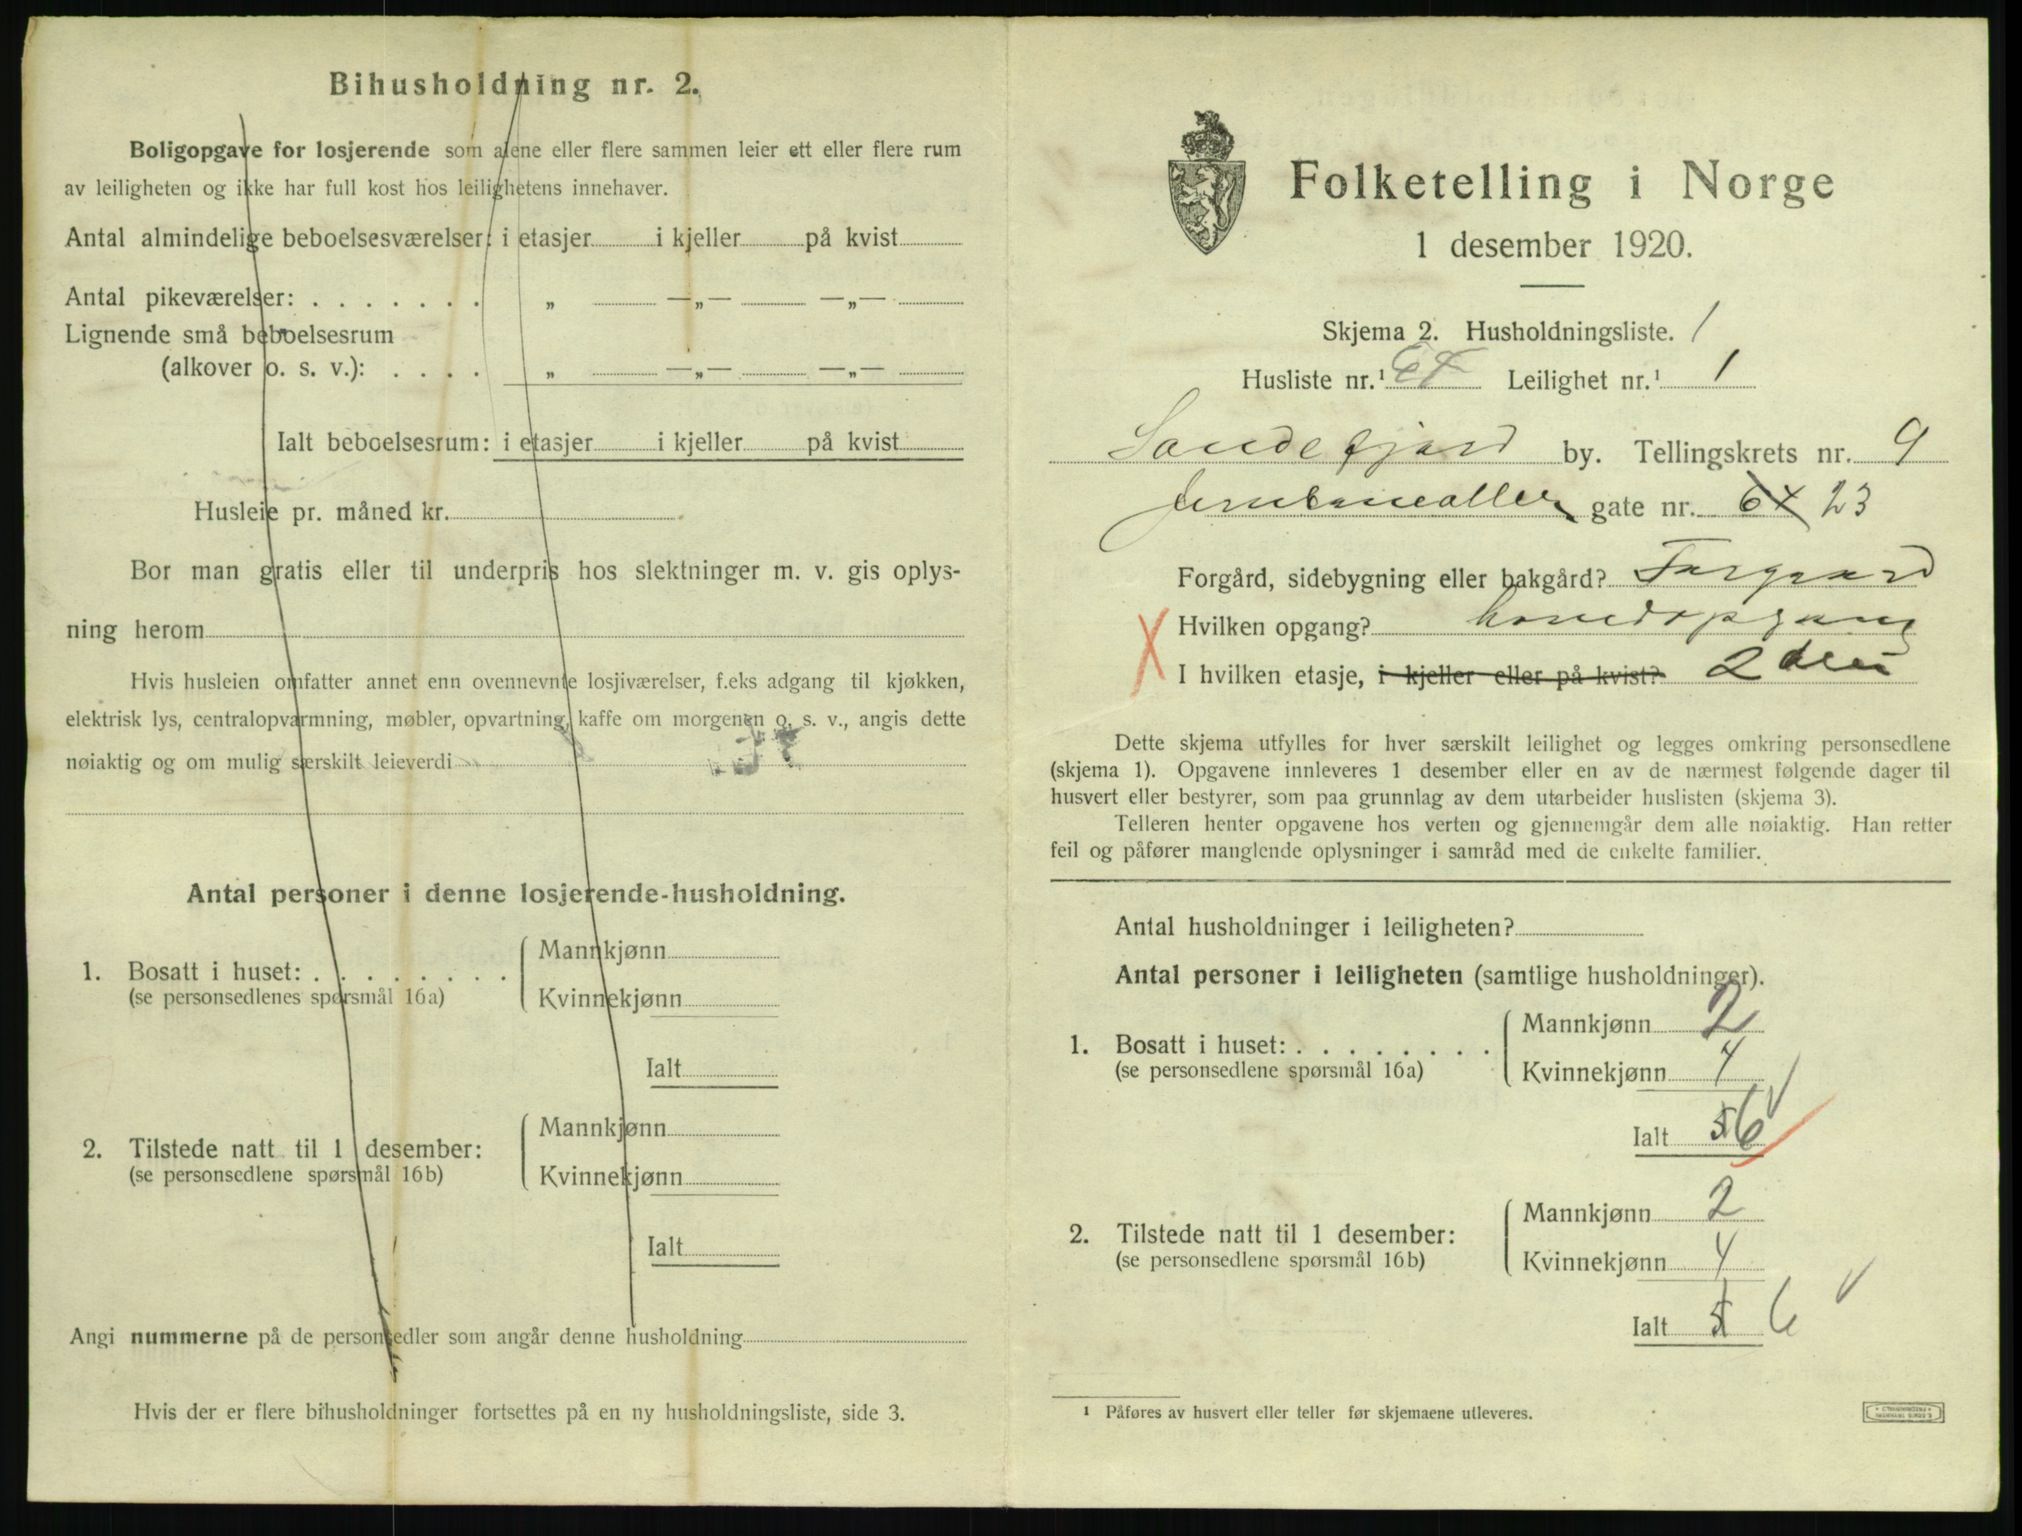 Bihusholdning nr. 2.
Boligopgave for losjerende som alene eller flere sammen leier ett eller flere rum
av leiligheten og ikke har full kost hos leilighetens innehaver.
Antal almindelige beboelsesværelser: i etasjer i kjeller på kvist
Antal pikeværelser: . . . . . . . „ —„— —„—
Lignende små beboelsesrum
(alkover o. s. v.): . . . . „ —„— —„—
Ialt beboelsesrum: i etasjer i kjeller på kvist
Husleie pr. måned kr.
Bor man gratis eller til underpris hos slektninger m. v. gis oplys-
ning herom
Hvis husleien omfatter annet enn ovennevnte losjiværelser, f.eks adgang til kjøkken,
elektrisk lys, centralopvarmning, møbler, opvartning, kaffe om morgenen o. s. v., angis dette
nøiaktig og om mulig særskilt leieverdi
Antal personer i denne losjerende-husholdning.
Mannkjønn
1. Bosatt i huset: . . . . . . . .
(se personsedlenes spørsmål 16a) Kvinnekjønn
Ialt
Mannkjønn
2. Tilstede natt til 1 desember:
(se personsedlene spørsmål 16b) Kvinnekjønn
Ialt
Angi nummerne på de personsedler som angår denne husholdning
Hvis der er flere bihusholdninger fortsettes på en ny husholdningsliste, side 3.
Folketelling i Norge
1 desember 1920.
Skjema 2. Husholdningsliste. 1
Husliste nr.¹ 64 Leilighet nr.¹ 1
Sandefjord by. Tellingskrets nr. 9
Jernbanealleen gate nr. 64 23
Forgård, sidebygning eller bakgård? Forgaard
X Hvilken opgang? hovedopgang
I hvilken etasje, i kjeller eller på kvist? 2den
Dette skjema utfylles for hver særskilt leilighet og legges omkring personsedlene
(skjema 1). Opgavene innleveres 1 desember eller en av de nærmest følgende dager til
husvert eller bestyrer, som paa grunnlag av dem utarbeider huslisten (skjema 3).
Telleren henter opgavene hos verten og gjennemgår dem alle nøiaktig. Han retter
feil og påfører manglende oplysninger i samråd med de enkelte familier.
Antal husholdninger i leiligheten?
Antal personer i leiligheten (samtlige husholdninger).
Mannkjønn 2
1. Bosatt i huset: . . . . . . . .
(se personsedlene spørsmål 16a) Kvinnekjønn 4
Ialt 5 6
Mannkjønn 2
2. Tilstede natt til 1 desember:
(se personsedlene spørsmål 16b) Kvinnekjønn 4
Ialt 5 6
¹ Påføres av husvert eller teller før skjemaene utleveres.